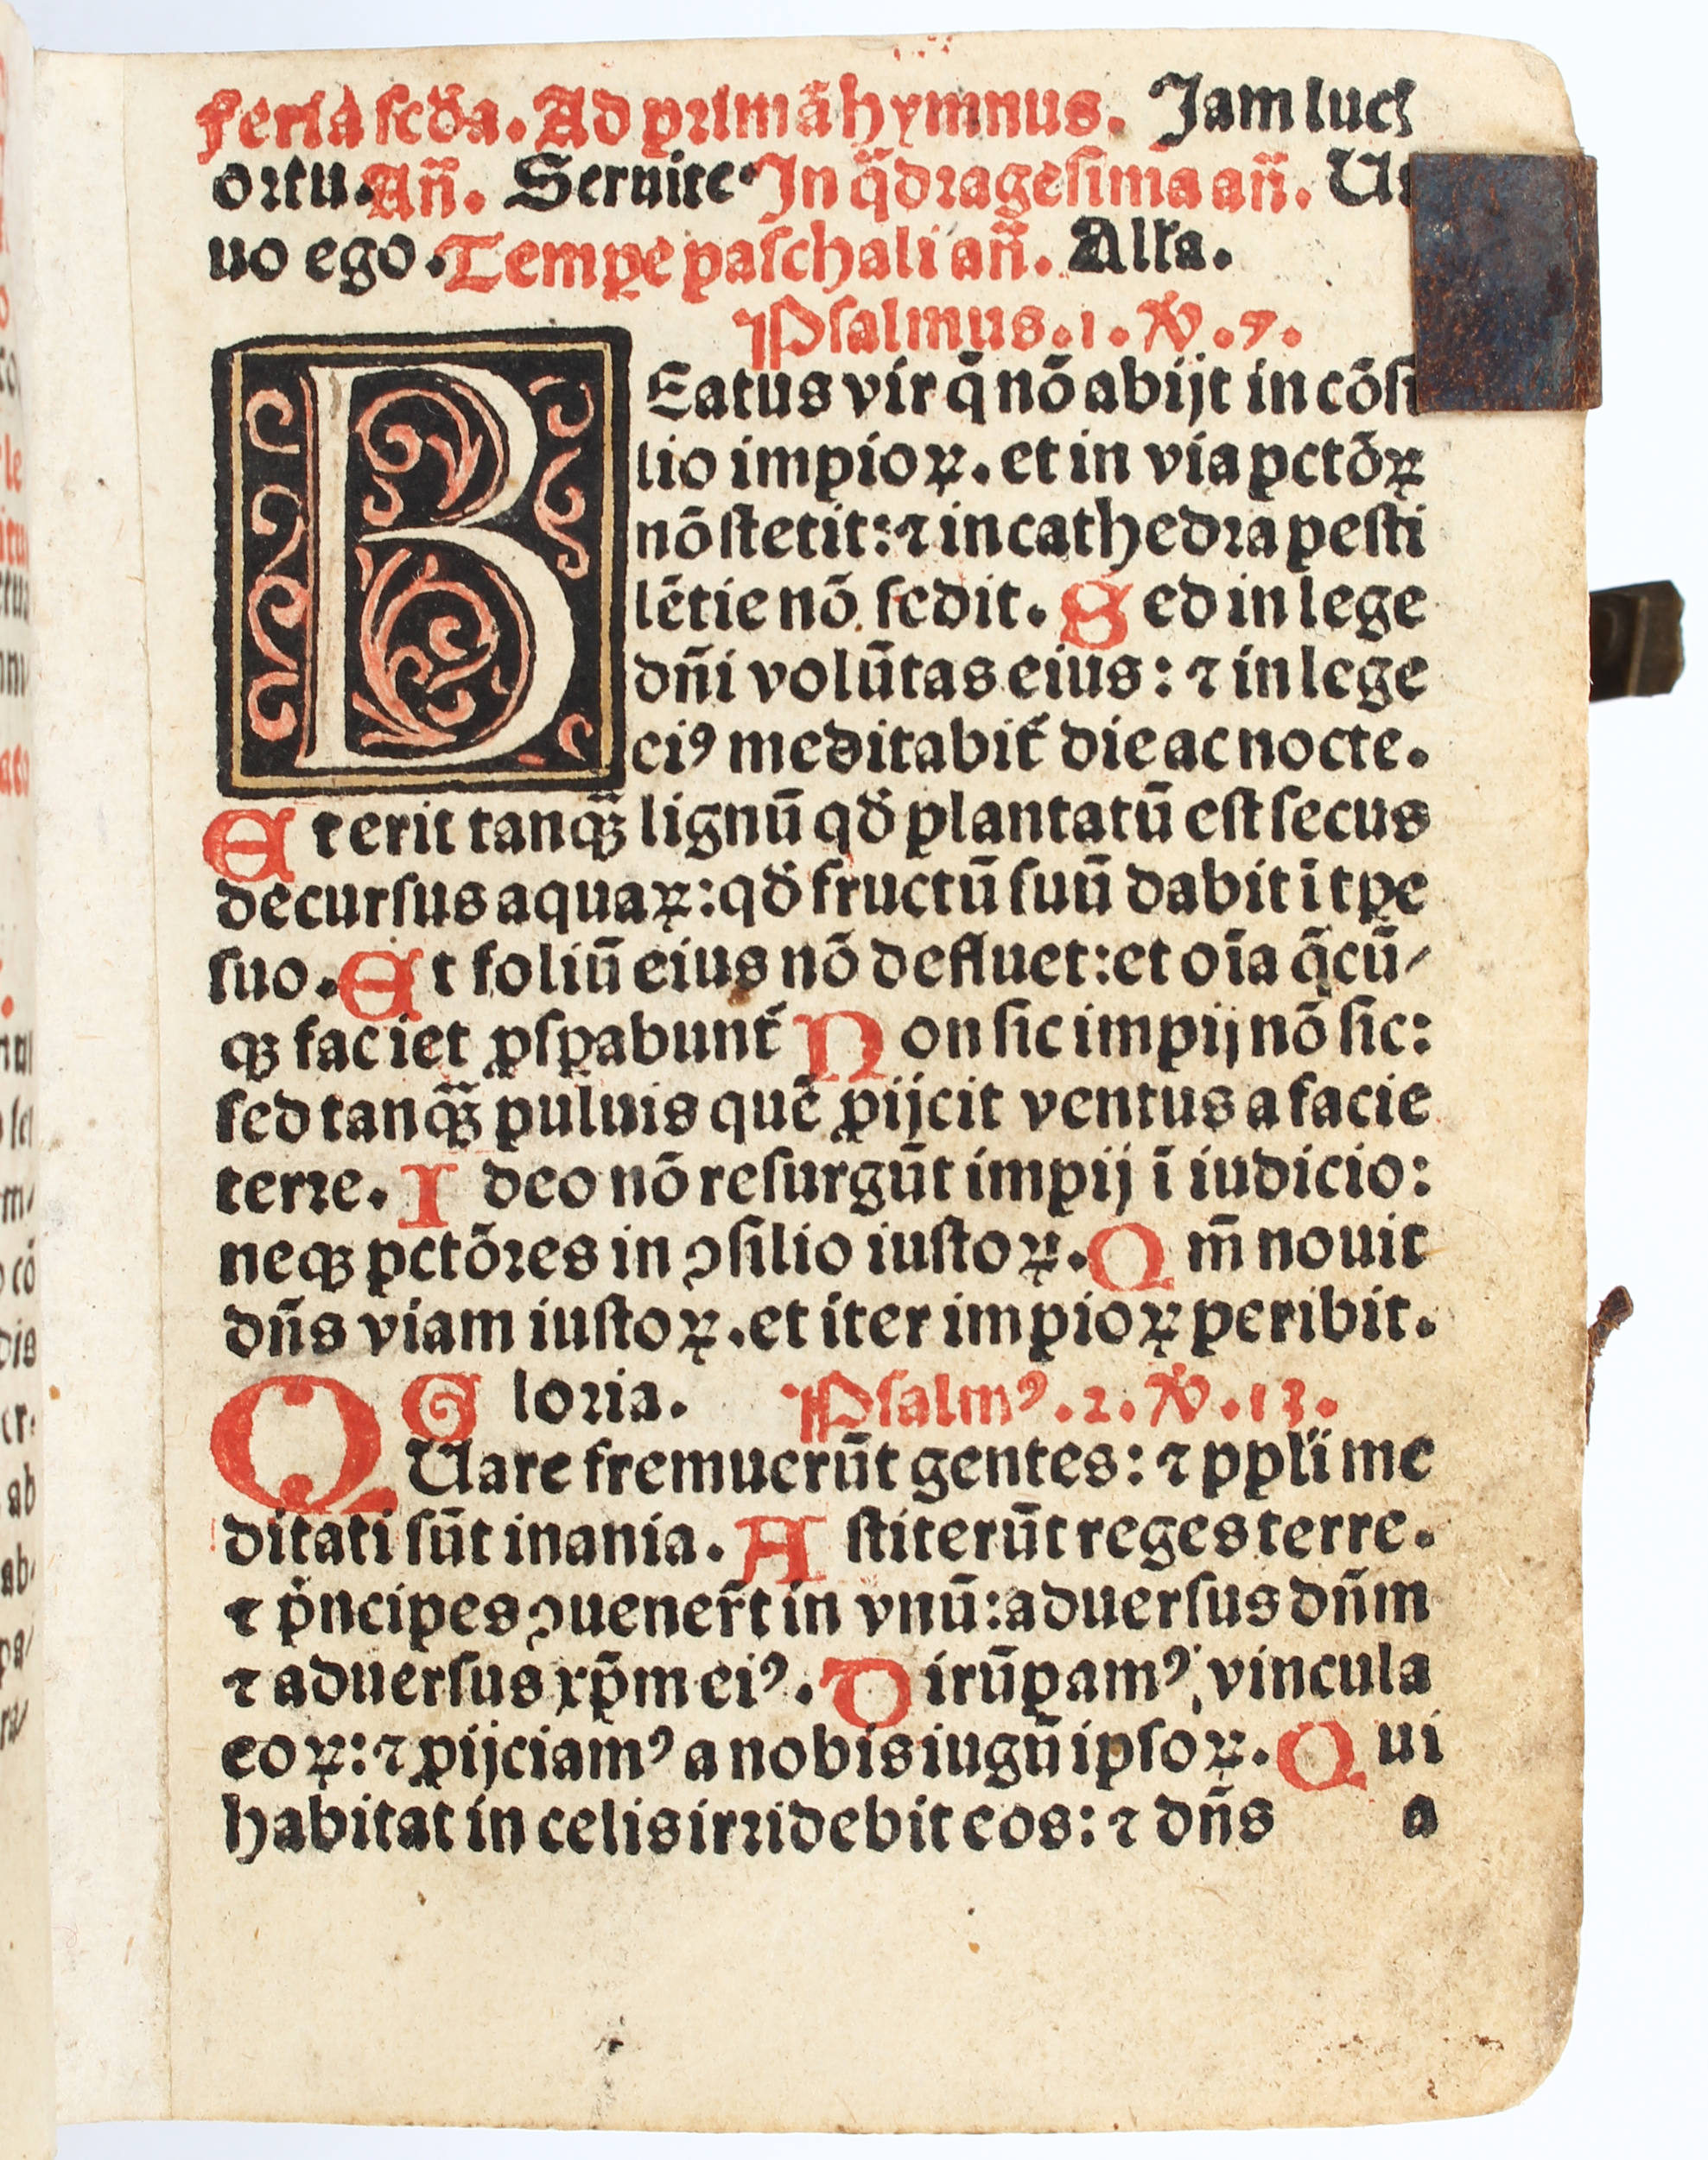 Feria scďa. Ad primā hymnus. Jam lucꝭ
ortu. Añ. Seruite. In q̄dragesima añ. Ui
uo ego. Tempe paschali añ. Alľa.
Psalmus. 1. ℣. 7.
BEatus vir q̄ nō abijt in cōsi
lio impioꝝ. et in via pctōꝝ
nō stetit: ⁊ in cathedra pesti
lētie nō sedit. Sed in lege
dñi volūtas eius: ⁊ in lege
eiꝰ meditabit́ die ac nocte.
Et erit tanqꝫ̄ lignū qď plantatū est secus
decursus aquaꝝ: qď fructū suū dabit ī tꝑe
suo. Et foliū eius nō defluet: et oīa q̄cū-
qꝫ faciet ꝓsꝑabunt́ Non sic impij nō sic:
sed tanqꝫ̄ puluis quē ꝓijcit ventus a facie
terre. Ideo nō resurgūt impij ī iudicio:
neqꝫ pctōres in ꝯsilio iustoꝝ. Qm̄ nouit
dñs viam iustoꝝ. et iter impioꝝ peribit.
Gloria. Psalmꝰ. 2. ℣. 13.
QUare fremuerūt gentes: ⁊ ppľi me
ditati sūt inania. Astiterūt reges terre.
⁊ pͥncipes ꝯuener̄t in vnū: aduersus dñm
⁊ aduersus xp̄m eiꝰ. Dirūpamꝰ vincula
eoꝝ: ⁊ ꝓijciamꝰ a nobis iugū ipsoꝝ. Qui
habitat in celis irridebit eos: ⁊ dñs a